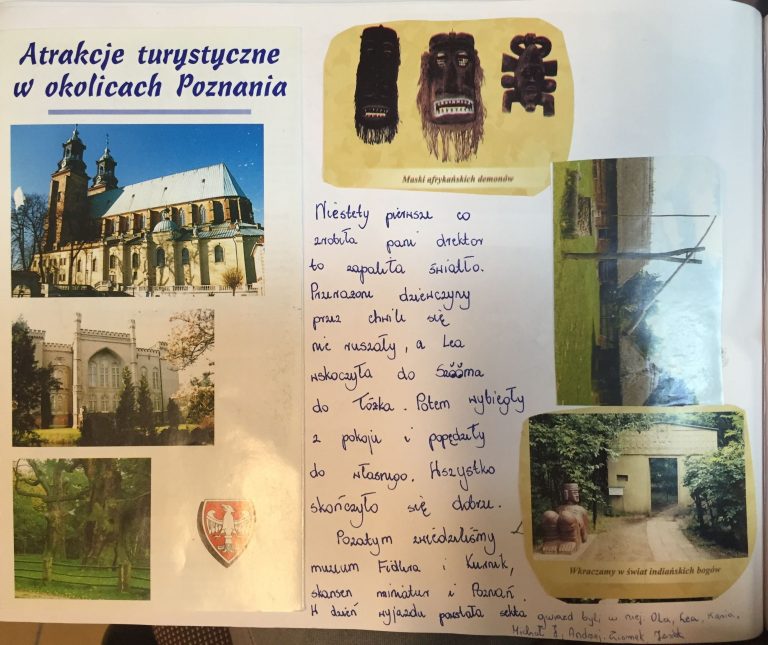 Atrakcje turystyczne
w okolicach Poznania
Maski afrykańskich demonów
Niestety pierwsze co
zrobiła pani drektor
to zapaliła światło.
Przerażone dziewczyny
przez chwile się
nie ruszały, a Lea
wskoczyła do
do łóżka. Potem wybiegły
z pokoju i popędziły
do własnego. Wszystko
skończyło się dobrze.
Pozatym zwiedziliśmy
muzeum Fidlera i Kurnik,
skansen miniatur i Poznań.
W dzień wyjazdu powstała sekta gwiazd byli w niej. Ola, Lea, Kasia,
Michał Andrzej Ziomek Jasiek
Wkraczamy w świat indiańskich bogów